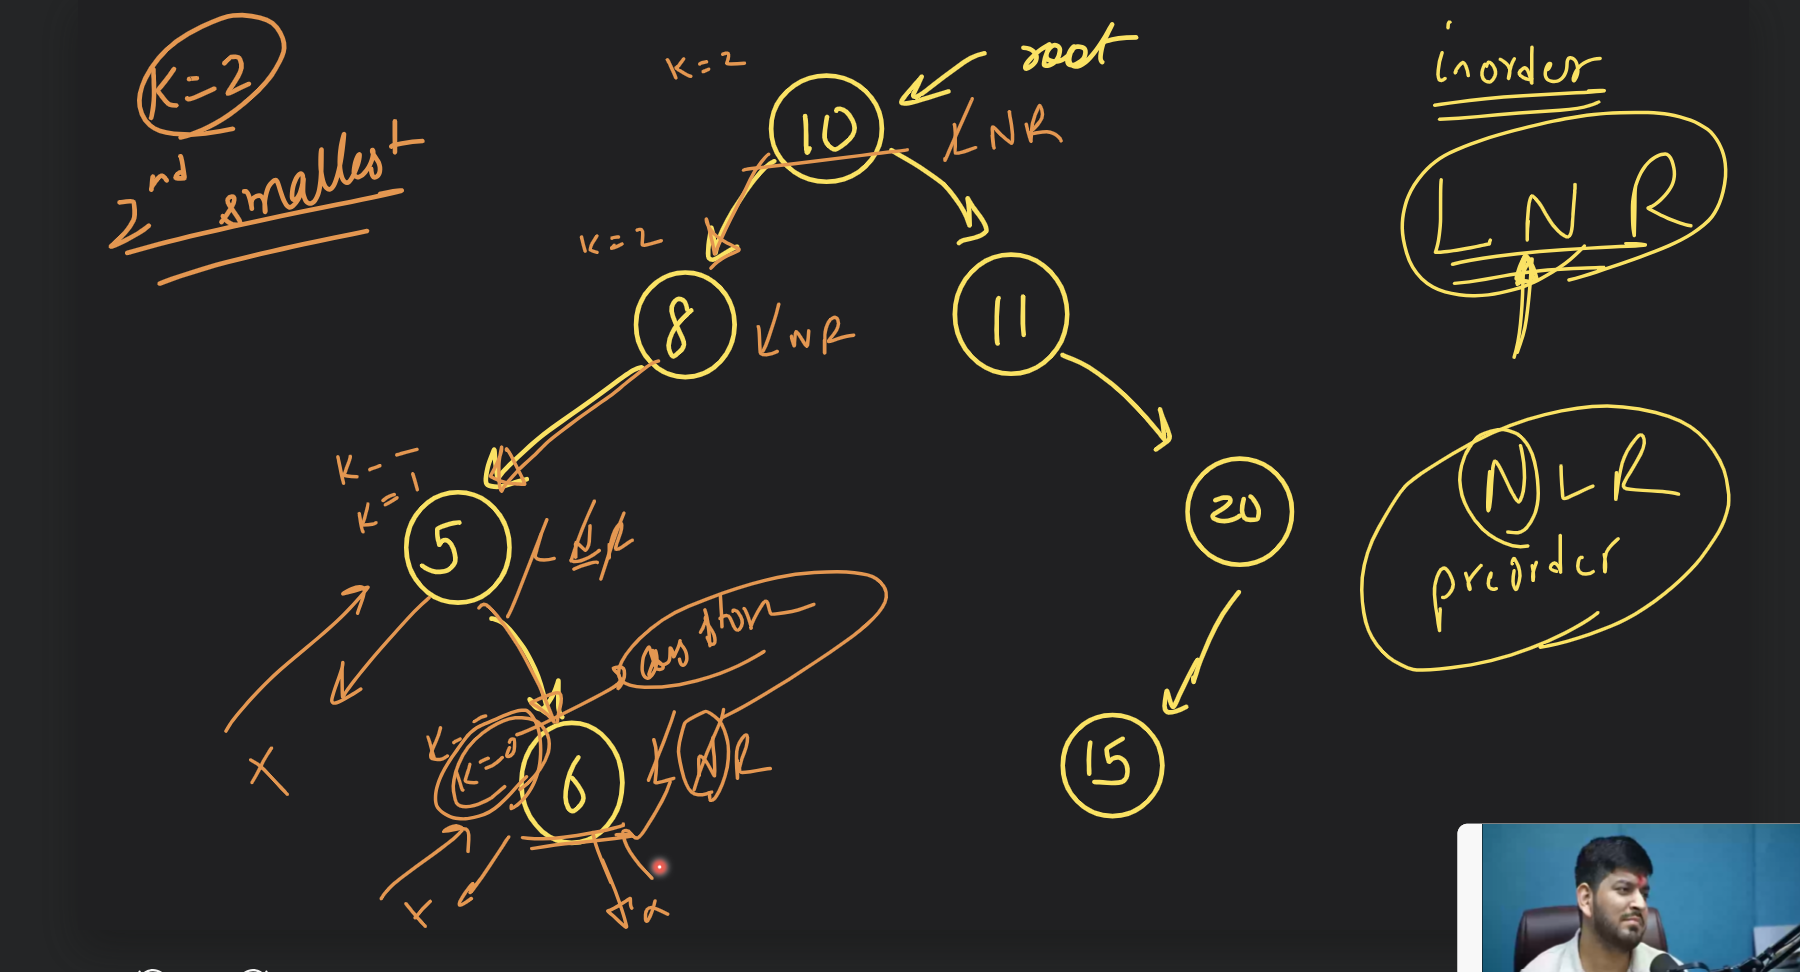 K=2
2nd smallest
K=2
root
10
LNR
K=2
8
LNR
11
K--
K=1
5
LNR
20
ans store
K--
K=0
6
LNR
15
x
x
x
inorder
LNR
NLR
preorder